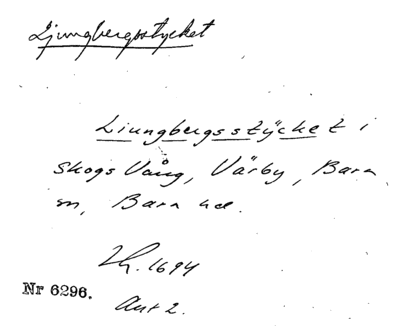 Ljungbergsstycket
Liungbergsstÿcket i
skogs Vång, Värby, Bara
sn, Bara hd.
Lh. 1694
Nr 6296.
Ant 2.